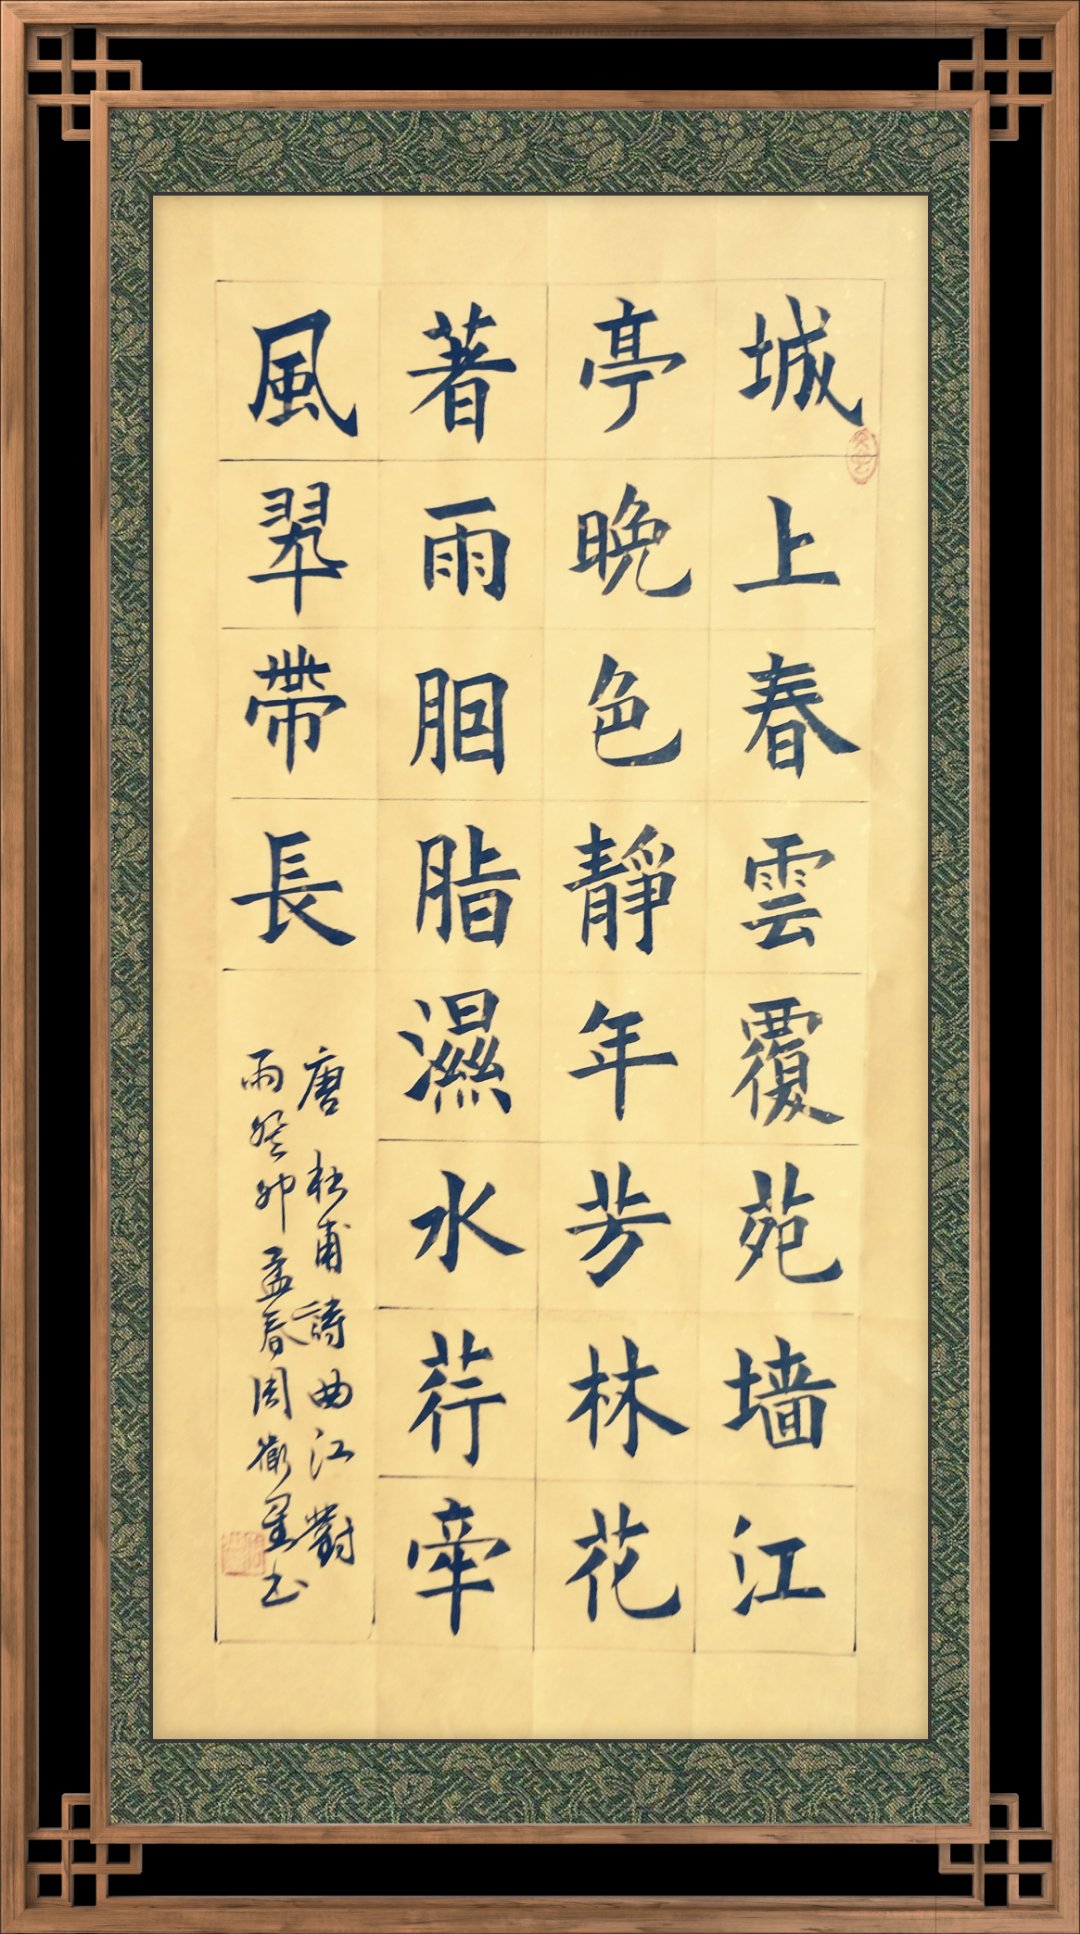 城上春雲覆苑墙江
亭晚色靜年芳林花
著雨胭脂濕水荇牽
風翠帶長
唐杜甫詩曲江對
雨癸卯孟春周
书